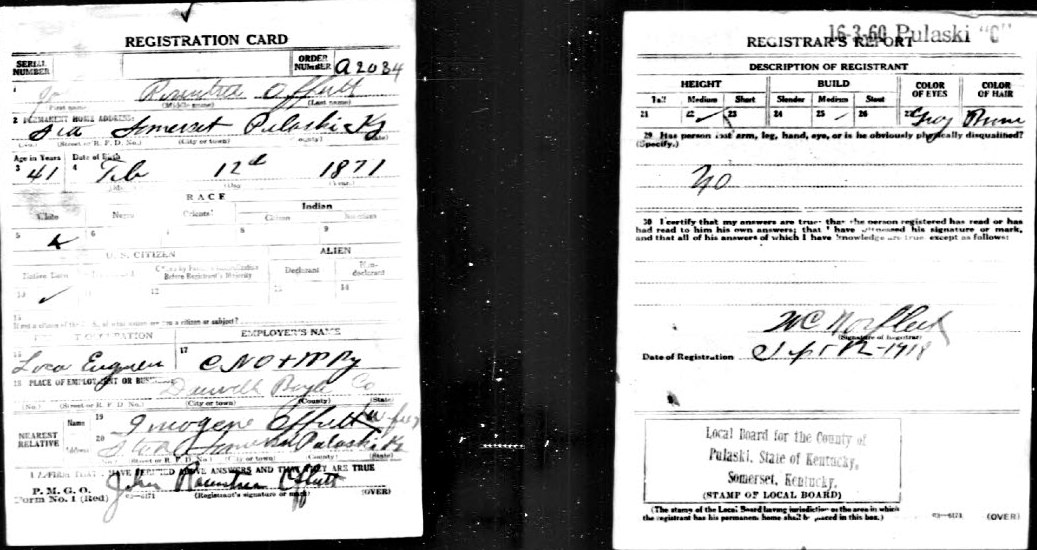 REGISTRATION CARD
SERIAL NUMBER
ORDER NUMBER A2034
1 Jo Rountree Offutt
First name (Middle name) (Last name)
2 PERMANENT HOME ADDRESS:
Sta Somerset Pulaski Ky
(No.) (Street or R. F. D. No.) (City or town) (County) (State)
Age in Years Date of Birth
3 41 4 Feb 12th 1871
(Day (Year.)
RACE
White Negro Oriental Indian
Citizen Noncitizen
5 6 7 8 9
U. S. CITIZEN ALIEN
Native Born Citizen by Father's Naturalization Before Registrant's Majority Declarant Non-declarant
10 ✓ 11 12 13 14
15
If not a citizen of the U. S., of what nation are you a citizen or subject?
PRESENT OCCUPATION EMPLOYER'S NAME
16 Loco Engineer 17 C N O + T P Ry
18 PLACE OF EMPLOYMENT OR BUSINESS:
Danville Boyle Co
(No.) (Street or R. F. D. No.) (City or town) (County) (State)
NEAREST RELATIVE
Name 19 Imogene Offutt wife
Address 20 Sta Somerset Pulaski Ky
(No.) (Street or R. F. D. No.) (City or town) (County) (State)
I AFFIRM THAT I HAVE VERIFIED ABOVE ANSWERS AND THAT THEY ARE TRUE
P. M. G. O.
Form No. 1 (Red) 03—6171 John Rountree Offutt
(Registrant's signature or mark) (OVER)
16-3-60 Pulaski "C"
REGISTRAR'S REPORT
DESCRIPTION OF REGISTRANT
HEIGHT BUILD COLOR OF EYES COLOR OF HAIR
Tall Medium Short Slender Medium Stout
21 22 ✓ 23 24 25 ✓ 26 27 Grey Brown
29 Has person lost arm, leg, hand, eye, or is he obviously physically disqualified?
(Specify.)
No
30 I certify that my answers are true; that the person registered has read or has
had read to him his own answers; that I have witnessed his signature or mark,
and that all of his answers of which I have knowledge are true except as follows:
W C Norfleet
(Signature of Registrar)
Date of Registration Sept 12-1918
Local Board for the County of
Pulaski, State of Kentucky,
Somerset, Kentucky.
(STAMP OF LOCAL BOARD)
(The stamp of the Local Board having jurisdiction of the area in which
the registrant has his permanent home shall be placed in this box.)
03—6171 (OVER)